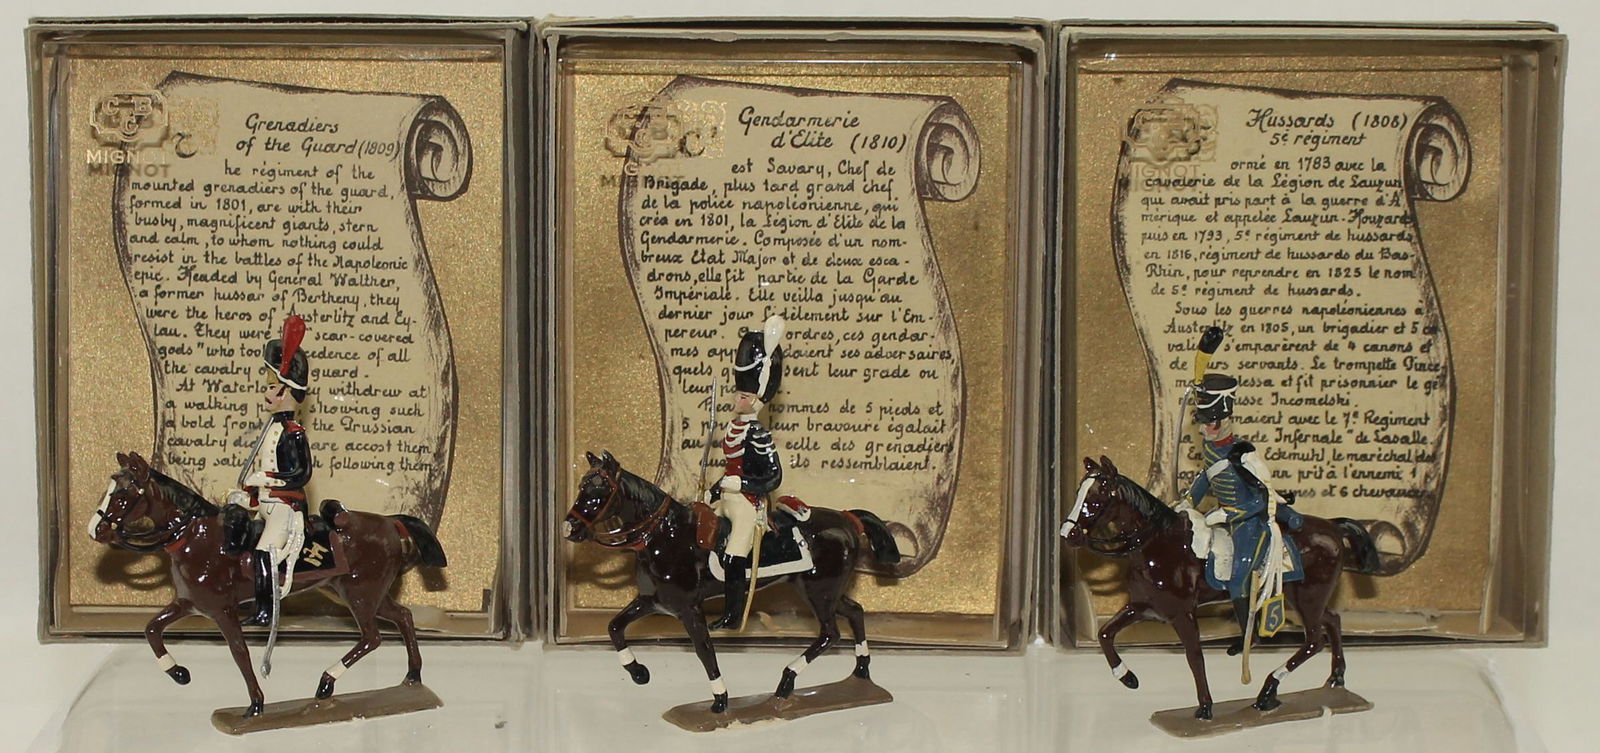 CBG
MIGNOT
MIGNOT
Grenadiers
of the Guard (1809)
The régiment of the
mounted grenadiers of the guard,
formed in 1801, are with their
busby, magnificent giants, stern
and calm, to whom nothing could
resist in the battles of the Napoleonic
epic. Headed by General Walther,
a former hussar of Bertheny, they
were the heros of Austerlitz and Ey-
lau. They were "scar-covered
gods" who took cedence of all
the cavalry guard.
At Waterloo they withdrew at
a walking showing such
a bold front the Prussian
cavalry are accost them
being following them
Gendarmerie
d'Élite (1810)
C'est Savary, Chef de
Brigade, plus tard grand chef
de la police napoléonienne, qui
créa en 1801, la Légion d'Élite de la
Gendarmerie. Composée d'un nom-
breux État Major et de deux esca-
drons, elle fit partie de la Garde
Impériale. Elle veilla jusqu'au
dernier jour fidèlement sur l'Em-
pereur. ordres, ces gendar-
mes daient ses adversaires,
quels sent leur grade ou
leur
Beaux hommes de 5 pieds et
5 leur bravoure égalait
au celle des grenadiers
ils ressemblaient.
Hussards (1808)
5e régiment
Formé en 1783 avec la
cavalerie de la Légion de Lauzun
qui avait pris part à la guerre d'A
mérique et appelée Lauzun-Houzards
puis en 1793, 5e régiment de hussards
en 1816, régiment de hussards du Bas-
Rhin, pour reprendre en 1825 le nom
de 5e régiment de hussards.
Sous les guerres napoléoniennes à
Austerlitz en 1805, un brigadier et 5 ca
valiers s'emparèrent de 4 canons et
de leurs servants. Le trompette
blessa et fit prisonnier le gé
russe Incomelski.
maient avec le 7e Régiment
la gade Infernale" de Lasalle.
Eckmuhl, le maréchal des
prit à l'ennemi 1
et 6 chevaux
5